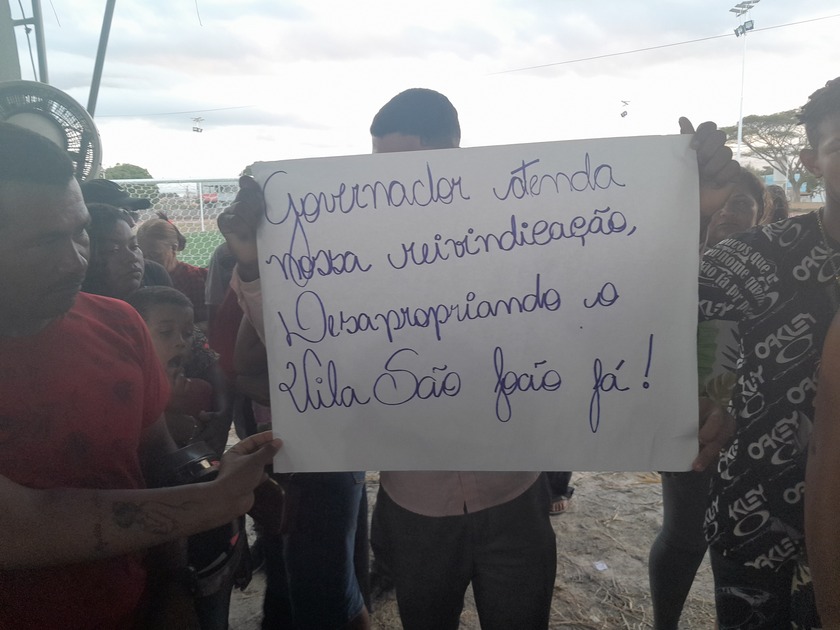 Governador atenda
nossa reivindicação,
Desapropriando a
Vila São João já!
OAKLEY
OAKLEY
OAKLEY
OAKLEY